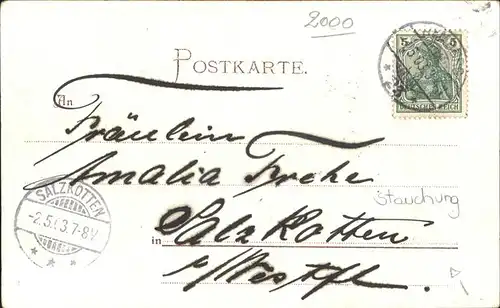 2000
5 5
DEUTSCHES REICH
POSTKARTE.
An
Fräulein
Amalia
SALZKOTTEN
-2.5. 3.7-8V
Stauchung
in Salzkotten
i/Westf.